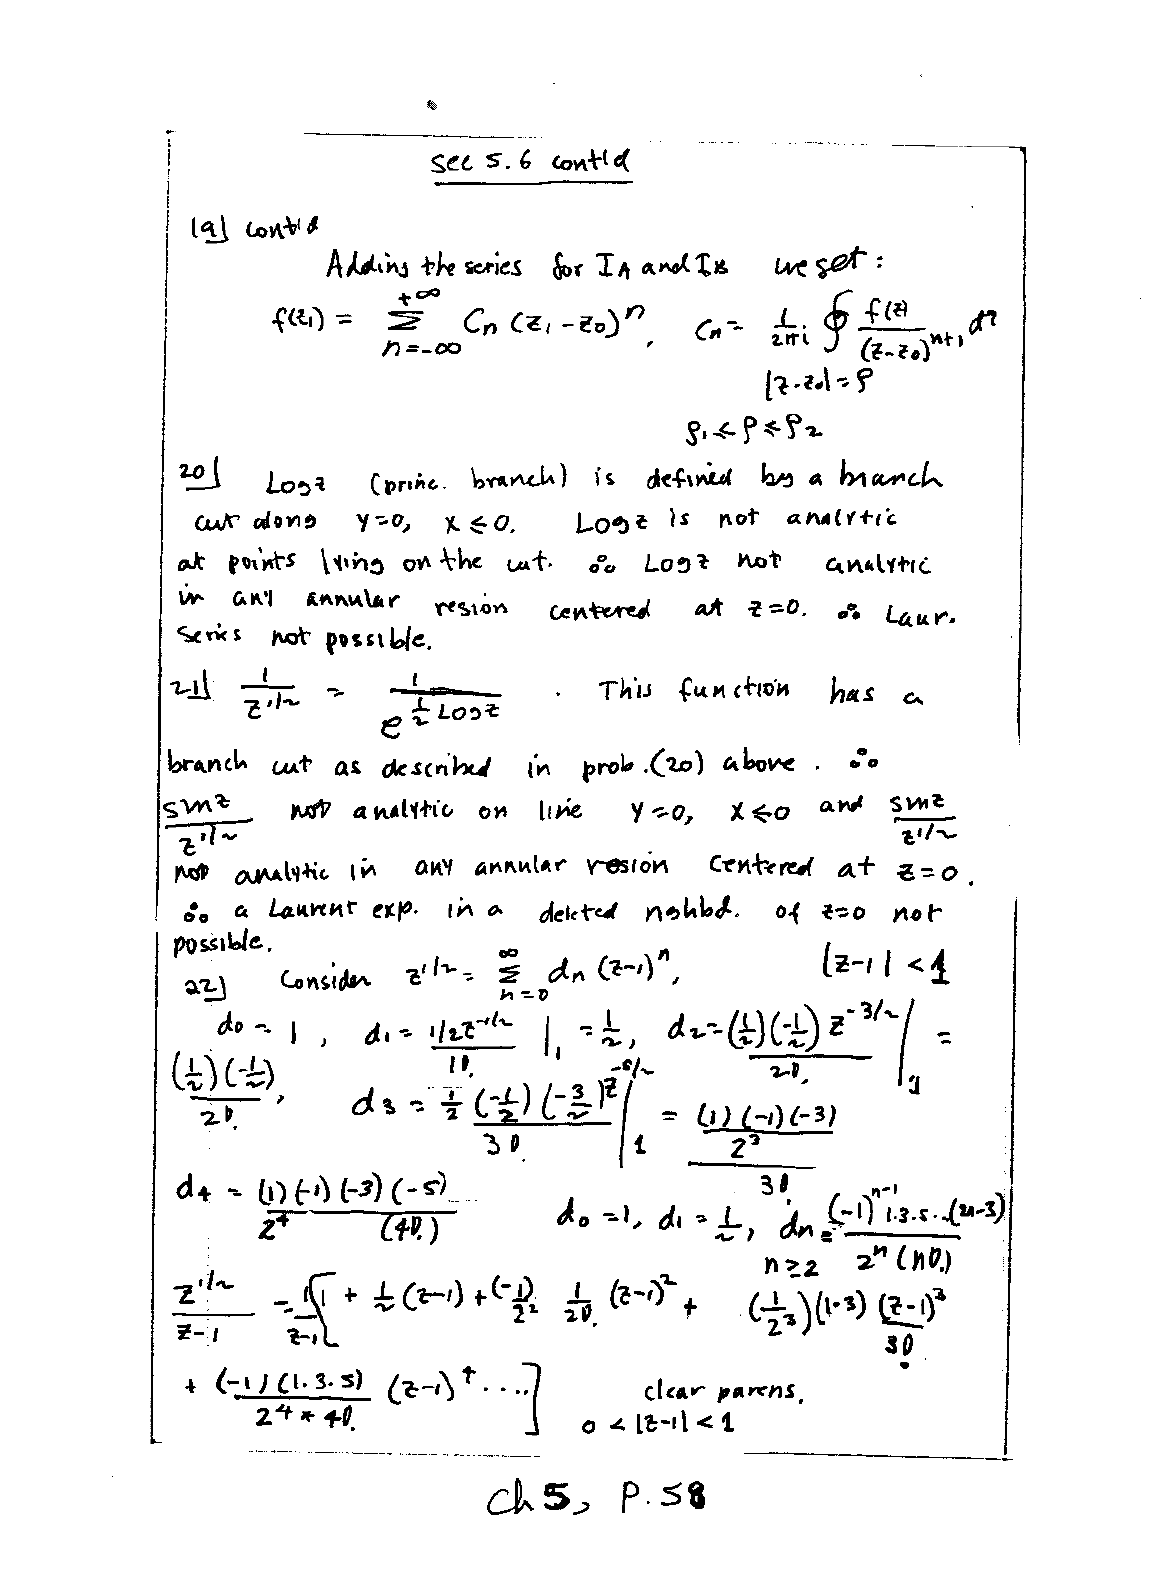 Sec 5.6 cont'd
19] cont'd
Adding the series for I_A and I_B we get :
f(z₁) = Σ_{n=-∞}^{+∞} Cn (z₁-z₀)ⁿ, Cn = 1/(2πi) ∮ f(z)/(z-z₀)ⁿ⁺¹ dz
|z-z₀| = ρ
ρ₁ ≤ ρ ≤ ρ₂
20] Log z (princ. branch) is defined by a branch
cut along y=0, x ≤ 0. Log z is not analytic
at points lying on the cut. ∴ Log z not analytic
in any annular region centered at z=0. ∴ Laur.
Series not possible.
21] 1/z^{1/2} = 1/e^{½ Log z} . This function has a
branch cut as described in prob.(20) above. ∴
sin z/z^{1/2} not analytic on line y=0, x ≤ 0 and sin z/z^{1/2}
not analytic in any annular region centered at z=0.
∴ a Laurent exp. in a deleted nghbd. of z=0 not
possible.
22] Consider z^{1/2} = Σ_{n=0}^{∞} dn (z-1)ⁿ, |z-1| < 1
d₀ = 1, d₁ = 1/2 z^{-1/2}/1! |₁ = 1/2, d₂ = (1/2)(-1/2) z^{-3/2}/2! |₁ =
(1/2)(-1/2)/2!, d₃ = 1/2 (-1/2)(-3/2) z^{-5/2}/3! |₁ = (1)(-1)(-3)/2³/3!
d₄ = (1)(-1)(-3)(-5)/2⁴ (4!) d₀ = 1, d₁ = 1/2, dn = (-1)^{n-1} 1·3·5··(2n-3)/2ⁿ (n!)
n ≥ 2
z^{1/2}/(z-1) = 1/(z-1) [1 + 1/2 (z-1) + (-1)/2² 1/2! (z-1)² + (1/2³)(1·3) (z-1)³/3!
+ (-1)(1·3·5)/2⁴ * 4! (z-1)⁴ ····] clear parens.
0 < |z-1| < 1
Ch 5, P. 58